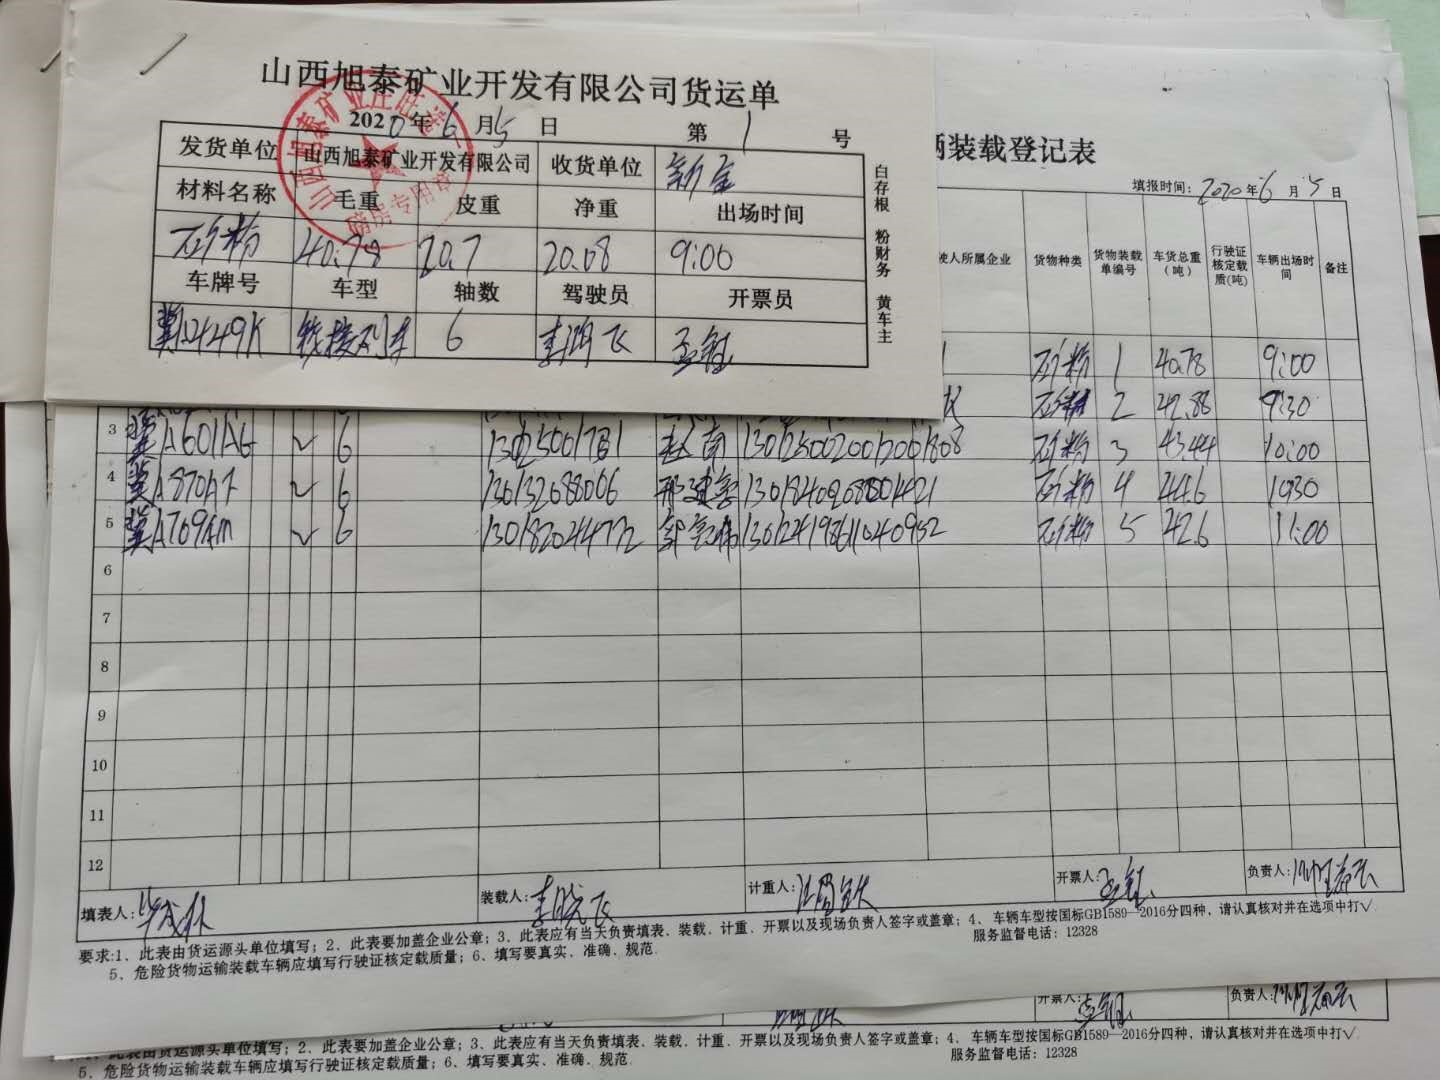 山西旭泰矿业开发有限公司货运单
2020年6月5日 第1号
发货单位 山西旭泰矿业开发有限公司 收货单位 新金
材料名称 毛重 皮重 净重 出场时间
石粉 40.78 20.7 20.08 9:00
车牌号 车型 轴数 驾驶员 开票员
铰接列车 6 李鸿飞 孟钰
白存根 粉财务 黄车主
辆装载登记表
填报时间：2020年6月5日
驶人所属企业 货物种类 货物装载单编号 车货总重（吨） 行驶证核定载质(吨) 车辆出场时间 备注
石粉 1 40.78 9:00
石粉 2 42.88 9:30
3 冀A601AG ✓ 6 石粉 3 43.44 10:00
4 冀A870A7 ✓ 6 130132088006 石粉 4 44.6 1030
5 冀A769AM ✓ 6 石粉 5 42.6 11:00
6
7
8
9
10
11
12
填表人： 装载人：李晓飞 计重人： 开票人：孟钰 负责人：
要求:1、此表由货运源头单位填写；2、此表要加盖企业公章；3、此表应有当天负责填表、装载、计重、开票以及现场负责人签字或盖章；4、车辆车型按国标GB1589—2016分四种，请认真核对并在选项中打√.
5、危险货物运输装载车辆应填写行驶证核定载质量；6、填写要真实、准确、规范.
服务监督电话：12328
开票人： 孟钰 负责人：
此表由货运源头单位填写；2、此表要加盖企业公章；3、此表应有当天负责填表、装载、计重、开票以及现场负责人签字或盖章；4、车辆车型按国标GB1589—2016分四种，请认真核对并在选项中打√.
5、危险货物运输装载车辆应填写行驶证核定载质量；6、填写要真实、准确、规范.
服务监督电话：12328